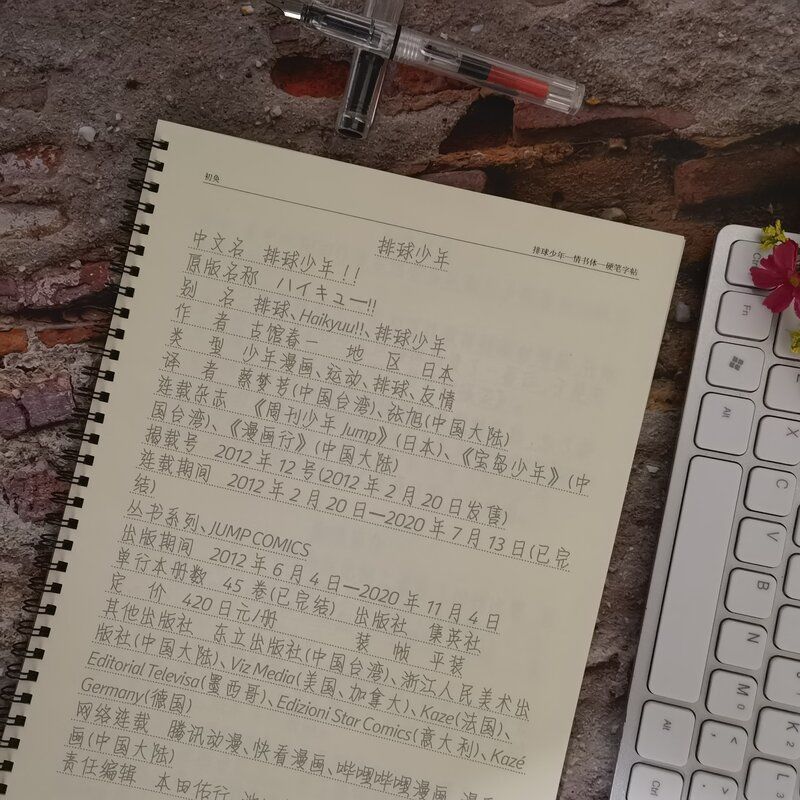 初奂
排球少年—情书体—硬笔字帖
排球少年
中文名 排球少年!!
原版名称 ハイキュー!!
别 名 排球、Haikyuu!!、排球少年
作 者 古馆春一 地 区 日本
类 型 少年漫画、运动、排球、友情
译 者 蔡梦芳(中国台湾)、张旭(中国大陆)
连载杂志 《周刊少年Jump》(日本)、《宝岛少年》(中
国台湾)、《漫画行》(中国大陆)
揭载号 2012年12号(2012年2月20日发售)
连载期间 2012年2月20日—2020年7月13日(已完
结)
丛书系列、JUMP COMICS
出版期间 2012年6月4日—2020年11月4日
单行本册数 45卷(已完结) 出版社 集英社
定 价 420日元/册 装 帧 平装
其他出版社 东立出版社(中国台湾)、浙江人民美术出
版社(中国大陆)、Viz Media(美国、加拿大)、Kaze(法国)、
Editorial Televisa(墨西哥)、Edizioni Star Comics(意大利)、Kazé
Germany(德国)
网络连载 腾讯动漫、快看漫画、哔哩哔哩漫画、漫
画(中国大陆)
责任编辑 本田佑行、池
Ctrl
Fn
Alt
X
C
V
B
N
M
Alt
Ctrl
K
L